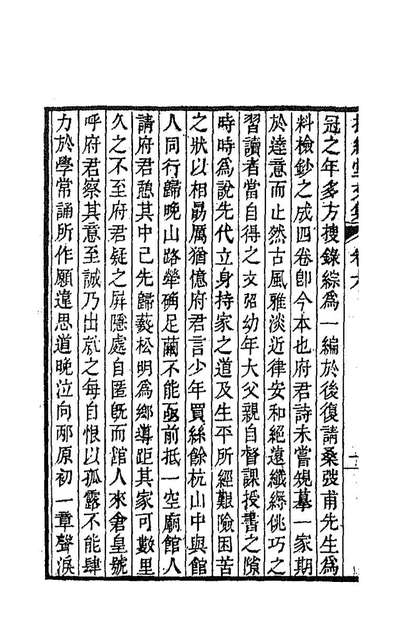 冠之年多方搜錄綜為一編於後復請桑弢甫先生為
料檢鈔之成四卷卽今本也府君詩未嘗規摹一家期
於達意而止然古風雅淡近律安和絕遠纖縟佻巧之
習讀者當自得之文弨幼年大父親自督課授書之隙
時時為說先代立身持家之道及生平所經艱險困苦
之狀以相勗厲猶憶府君言少年買絲餘杭山中與館
人同行歸晚山路犖确足繭不能亟前抵一空廟館人
請府君憩其中已先歸蓺松明為鄉導距其家可數里
久之不至府君疑之屏隱處自匿旣而館人來倉皇號
呼府君察其意至誠乃出就之每自恨以孤露不能肆
力於學常誦所作願違思道晚泣向邴原初一章聲淚